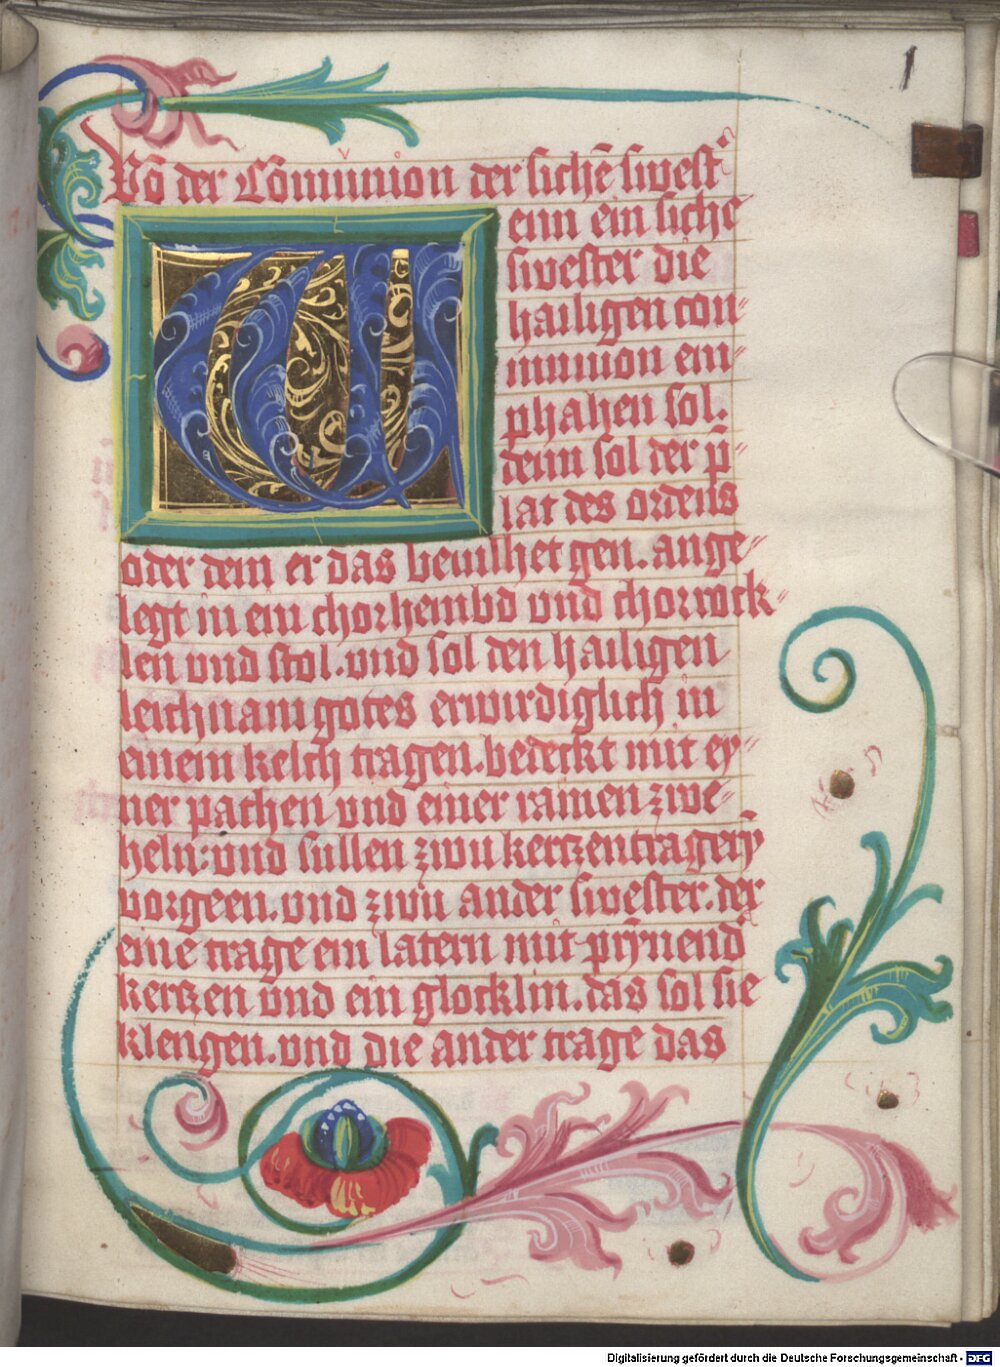 1
Võ der Cõmunion der sichẽ swest'
Wenn ein siche
swester die
hailigen com-
munion em-
phahen sol.
denn sol der p̃-
lat des ordens
oder dem er das beuilhet gen. ange-
legt in ein chorhembd vnd chorrock-
len vnd stol. vnd sol den hailigen
leichnam gotes erwirdiglich in
einem kelch tragen. bedeckt mit ey-
ner pathen vnd einer rainen zwe-
heln: vnd sullen zwu kertzentragerỹ
vorgeen. vnd zwu ander swester. der
eine trage ein latern mit prynend
kertzen vnd ein glocklin. das sol sie
klengen. vnd die ander trage das
Digitalisierung gefördert durch die Deutsche Forschungsgemeinschaft - DFG